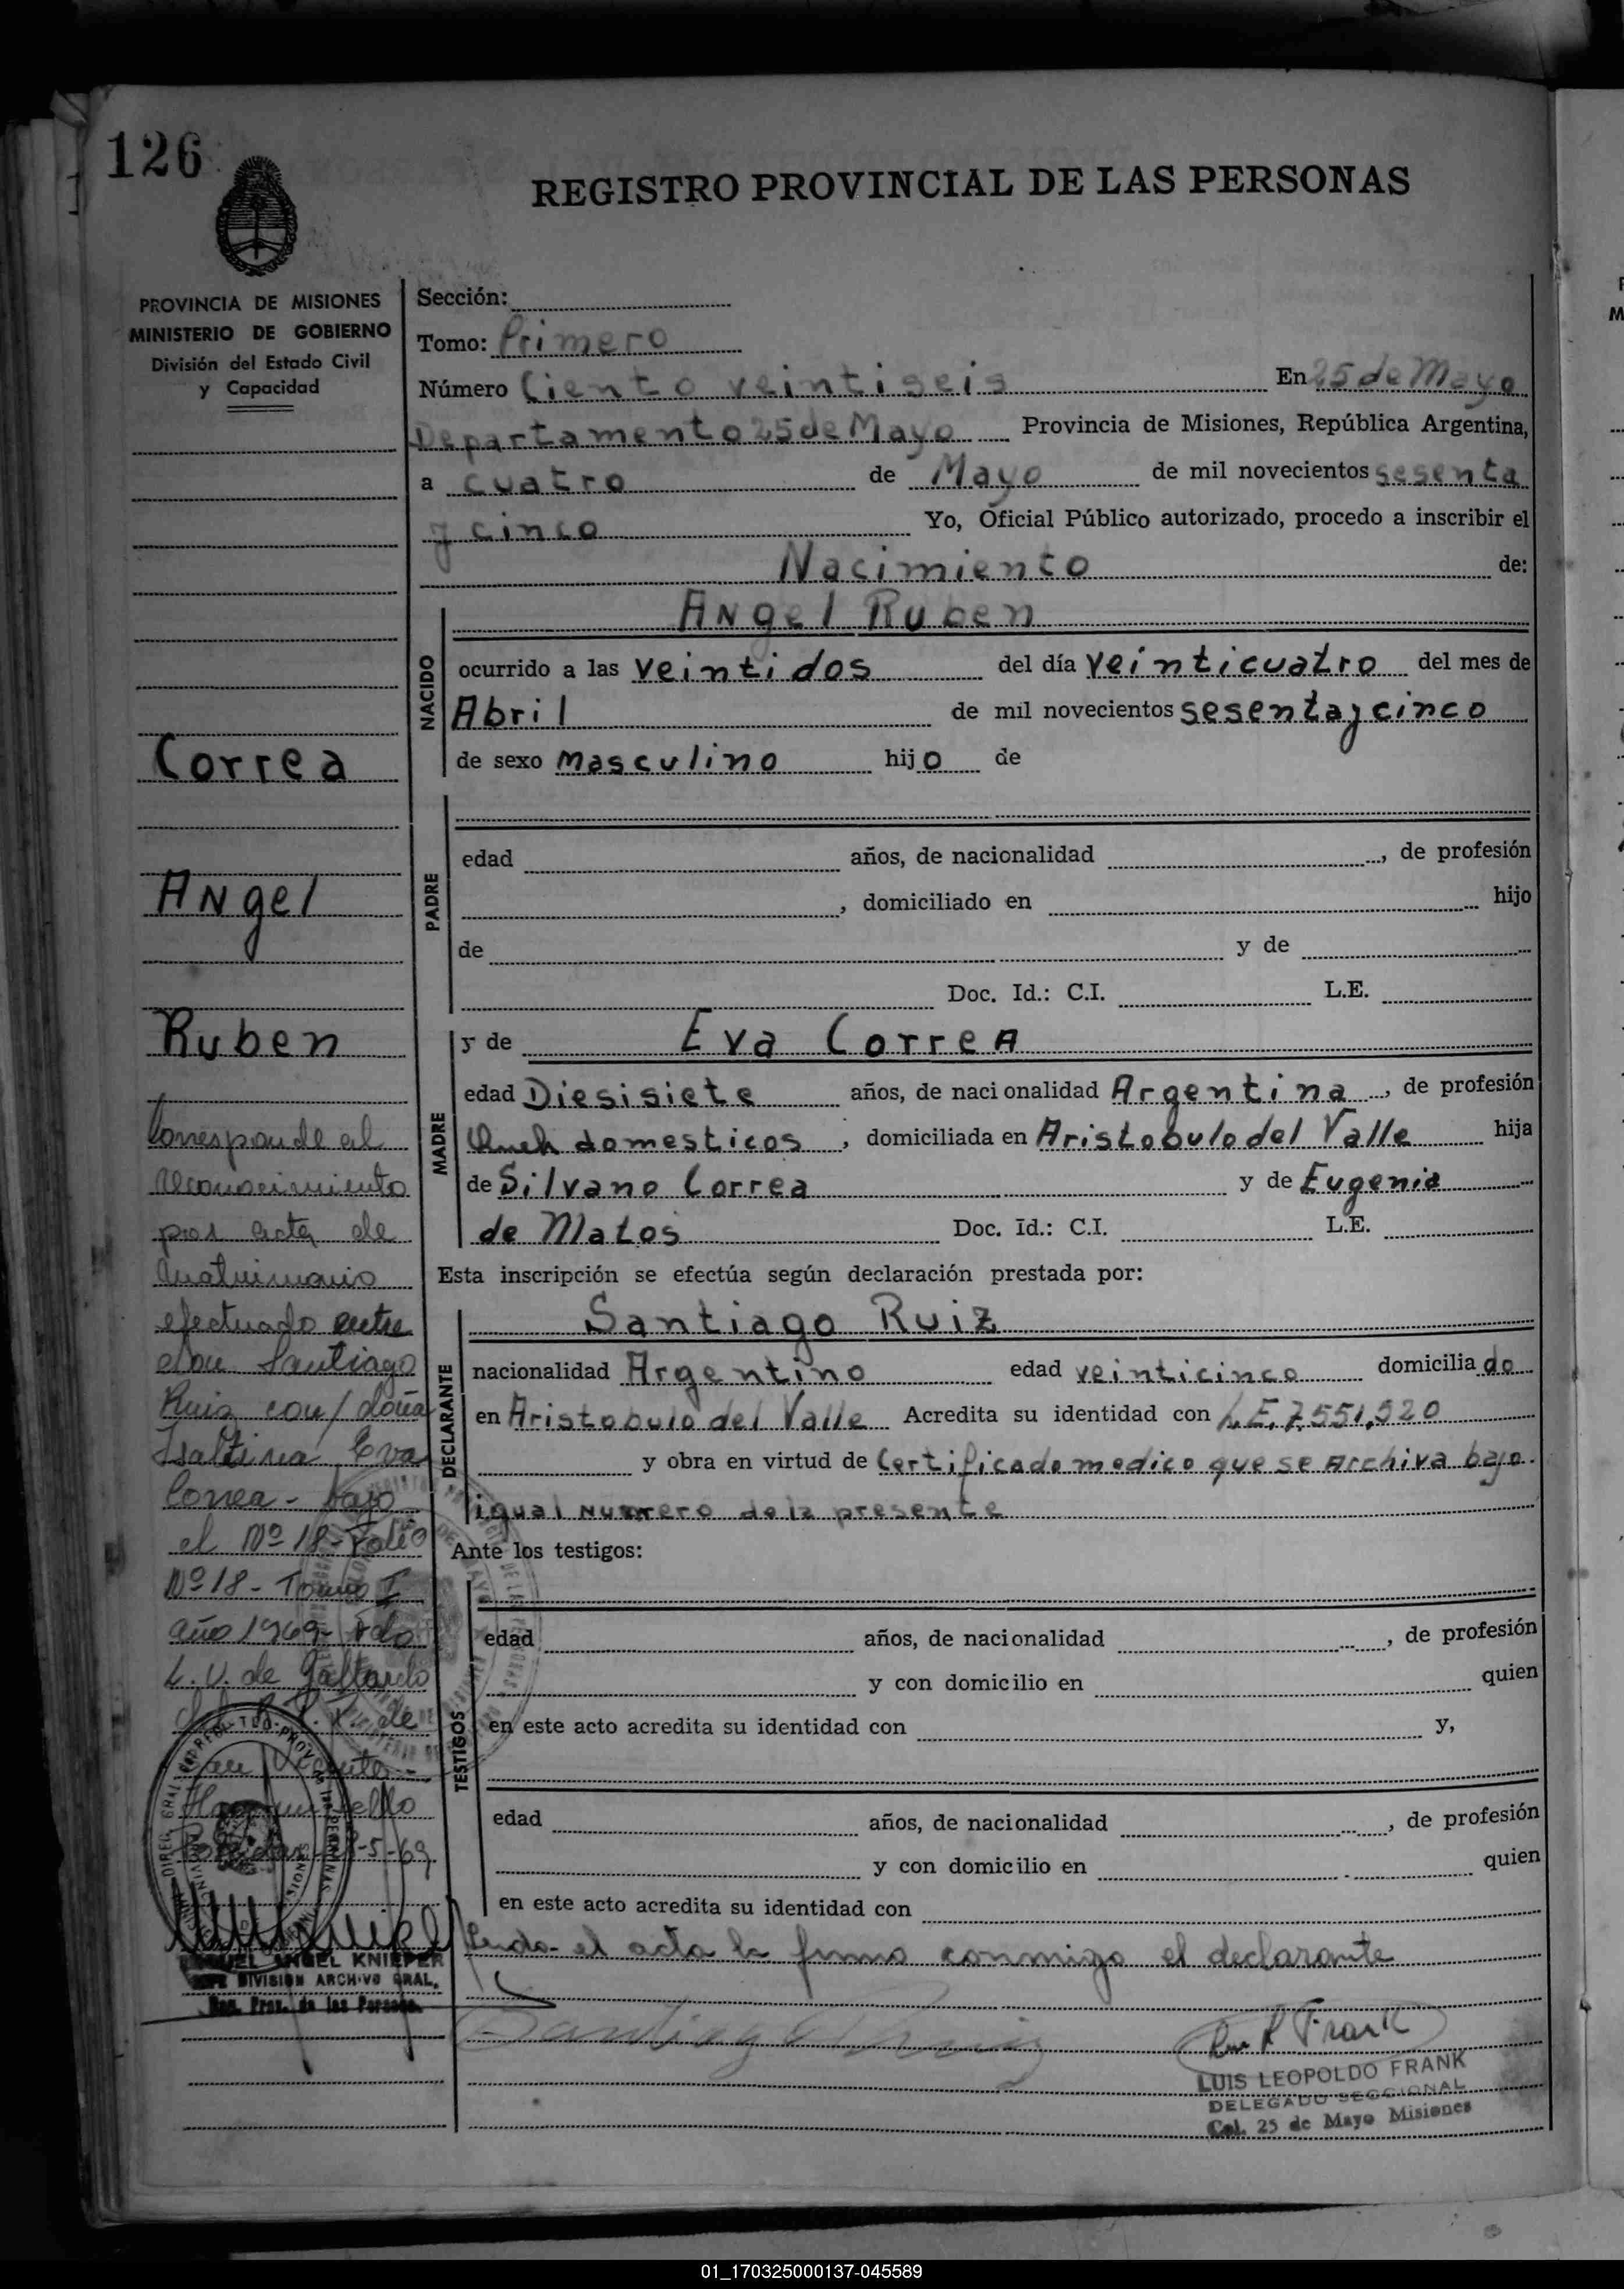 126
REGISTRO PROVINCIAL DE LAS PERSONAS
PROVINCIA DE MISIONES
MINISTERIO DE GOBIERNO
División del Estado Civil
y Capacidad
Sección:
Tomo: Primero
Número Ciento veintiseis En 25 de Mayo
Departamento 25 de Mayo Provincia de Misiones, República Argentina,
a cuatro de Mayo de mil novecientos sesenta
y cinco Yo, Oficial Público autorizado, procedo a inscribir el
Nacimiento de:
NACIDO
Angel Ruben
ocurrido a las veintidos del día veinticuatro del mes de
Abril de mil novecientos sesenta y cinco
de sexo masculino hijo de
PADRE
edad años, de nacionalidad , de profesión
, domiciliado en hijo
de y de
Doc. Id.: C.I. L.E.
MADRE
y de Eva Correa
edad Diesisiete años, de nacionalidad Argentina , de profesión
domesticos , domiciliada en Aristobulo del Valle hija
de Silvano Correa y de Eugenia
de Matos Doc. Id.: C.I. L.E.
Esta inscripción se efectúa según declaración prestada por:
DECLARANTE
Santiago Ruiz
nacionalidad Argentino edad veinticinco domiciliado
en Aristobulo del Valle Acredita su identidad con L.E. 7.551,520
y obra en virtud de Certificado medico que se Archiva bajo
igual numero de la presente
Ante los testigos:
TESTIGOS
edad años, de nacionalidad , de profesión
y con domicilio en quien
en este acto acredita su identidad con y,
edad años, de nacionalidad , de profesión
y con domicilio en quien
en este acto acredita su identidad con
Leida el acta la firma conmigo el declarante
Santiago Ruiz
Frank
LUIS LEOPOLDO FRANK
DELEGADO SECCIONAL
Col. 25 de Mayo Misiones
Correa
Angel
Ruben
Corresponde al
reconocimiento
por acta de
matrimonio
efectuado entre
don Santiago
Ruiz con/ doña
Isaltina Eva
Correa - bajo
el Nº 18 - Folio
Nº 18 - Tomo I
año 1969 - Fdo
L. V. de Gallardo
de
San Vicente -
Hay un sello
Posadas -5-69
MIGUEL ANGEL KNIEPER
JEFE DIVISION ARCHIVO GRAL.
Reg. Prov. de las Personas
01_170325000137-045589